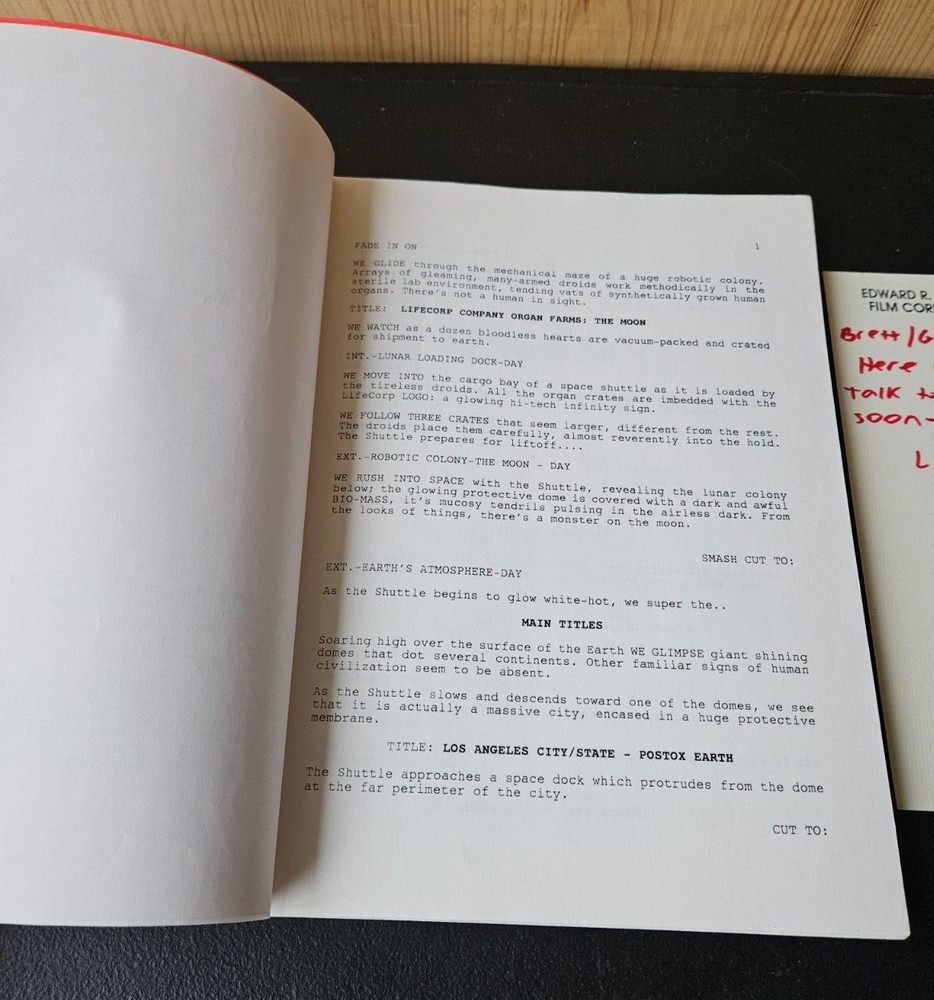 FADE IN ON
1
WE GLIDE through the mechanical maze of a huge robotic colony.
Arrays of gleaming, many-armed droids work methodically in the
sterile lab environment, tending vats of synthetically grown human
organs. There's not a human in sight.
TITLE: LIFECORP COMPANY ORGAN FARMS: THE MOON
WE WATCH as a dozen bloodless hearts are vacuum-packed and crated
for shipment to earth.
INT.-LUNAR LOADING DOCK-DAY
WE MOVE INTO the cargo bay of a space shuttle as it is loaded by
the tireless droids. All the organ crates are imbedded with the
LifeCorp LOGO: a glowing hi-tech infinity sign.
WE FOLLOW THREE CRATES that seem larger, different from the rest.
The droids place them carefully, almost reverently into the hold.
The Shuttle prepares for liftoff....
EXT.-ROBOTIC COLONY-THE MOON - DAY
WE RUSH INTO SPACE with the Shuttle, revealing the lunar colony
below; the glowing protective dome is covered with a dark and awful
BIO-MASS, it's mucosy tendrils pulsing in the airless dark. From
the looks of things, there's a monster on the moon.
SMASH CUT TO:
EXT.-EARTH'S ATMOSPHERE-DAY
As the Shuttle begins to glow white-hot, we super the..
MAIN TITLES
Soaring high over the surface of the Earth WE GLIMPSE giant shining
domes that dot several continents. Other familiar signs of human
civilization seem to be absent.
As the Shuttle slows and descends toward one of the domes, we see
that it is actually a massive city, encased in a huge protective
membrane.
TITLE: LOS ANGELES CITY/STATE - POSTOX EARTH
The Shuttle approaches a space dock which protrudes from the dome
at the far perimeter of the city.
CUT TO:
EDWARD R.
FILM COR
Brett/G
Here
talk to
soon-
L